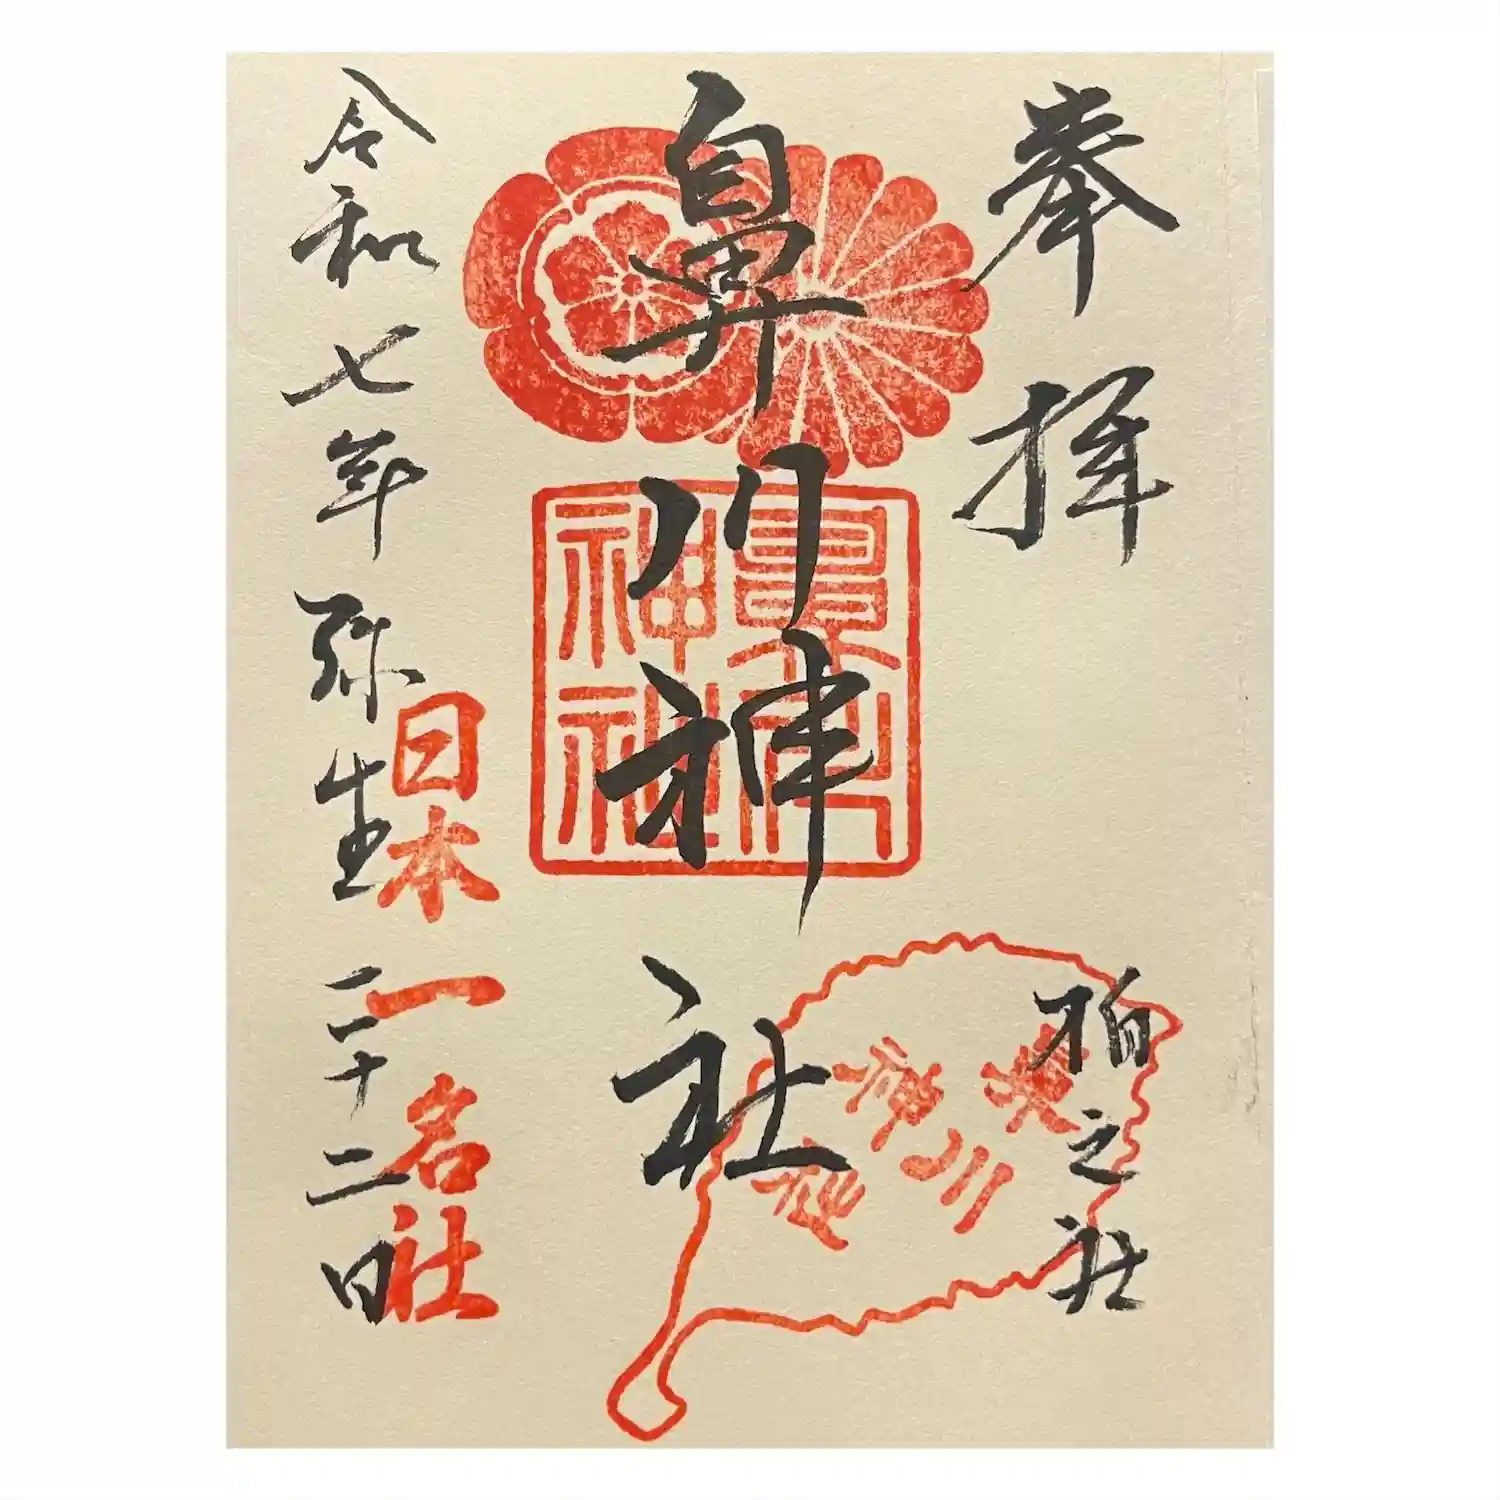 奉拝
柏之社
鼻川神社
鼻川
神社
鼻川神社
日本一名社
令和七年弥生二十二日